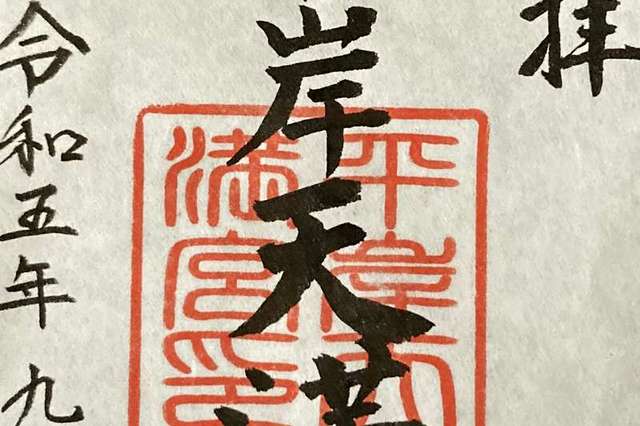 拝
岸天満
平岸天
満宮印
令和五年九